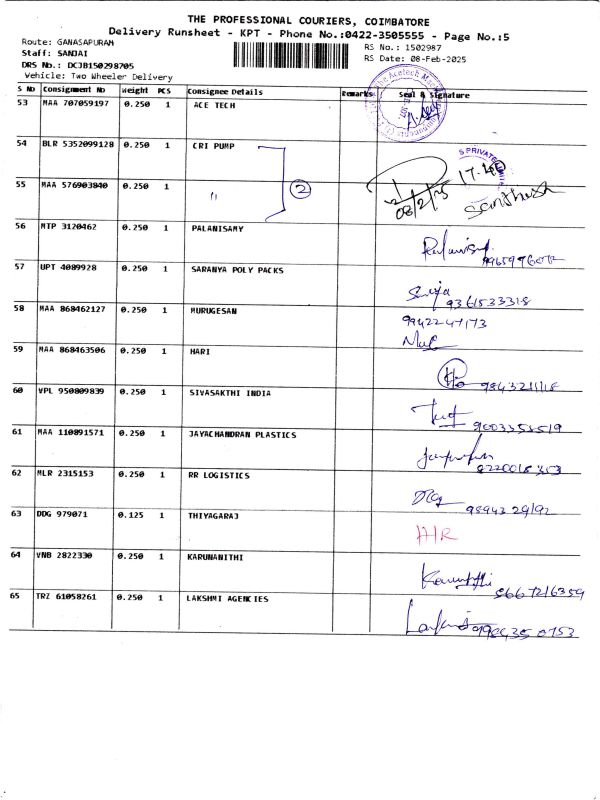 THE PROFESSIONAL COURIERS, COIMBATORE
Delivery Runsheet - KPT - Phone No.:0422-3505555 - Page No.:5
Route: GANASAPURAM
RS No.: 1502987
Staff: SANJAI
RS Date: 08-Feb-2025
DRS No.: DCJB150298705
Vehicle: Two Wheeler Delivery
S No Consignment No Weight PCS Consignee Details Remarks Seal & Signature
53 MAA 707059197 0.250 1 ACE TECH
54 BLR 5352099128 0.250 1 CRI PUMP
S PRIVATE
55 MAA 576903840 0.250 1 " 2
08/2/25 Santhosh
56 MTP 3120462 0.250 1 PALANISAMY
57 UPT 4089928 0.250 1 SARANYA POLY PACKS
9361533318
58 MAA 868462127 0.250 1 MURUGESAN
9942247173
59 MAA 868463506 0.250 1 HARI
9843211118
60 VPL 950809839 0.250 1 SIVASAKTHI INDIA
9003353519
61 MAA 110891571 0.250 1 JAYACHANDRAN PLASTICS
62 MLR 2315153 0.250 1 RR LOGISTICS
63 DDG 979071 0.125 1 THIYAGARAJ
64 VNB 2822330 0.250 1 KARUNANITHI
8667216359
65 TRZ 61058261 0.250 1 LAKSHMI AGENCIES